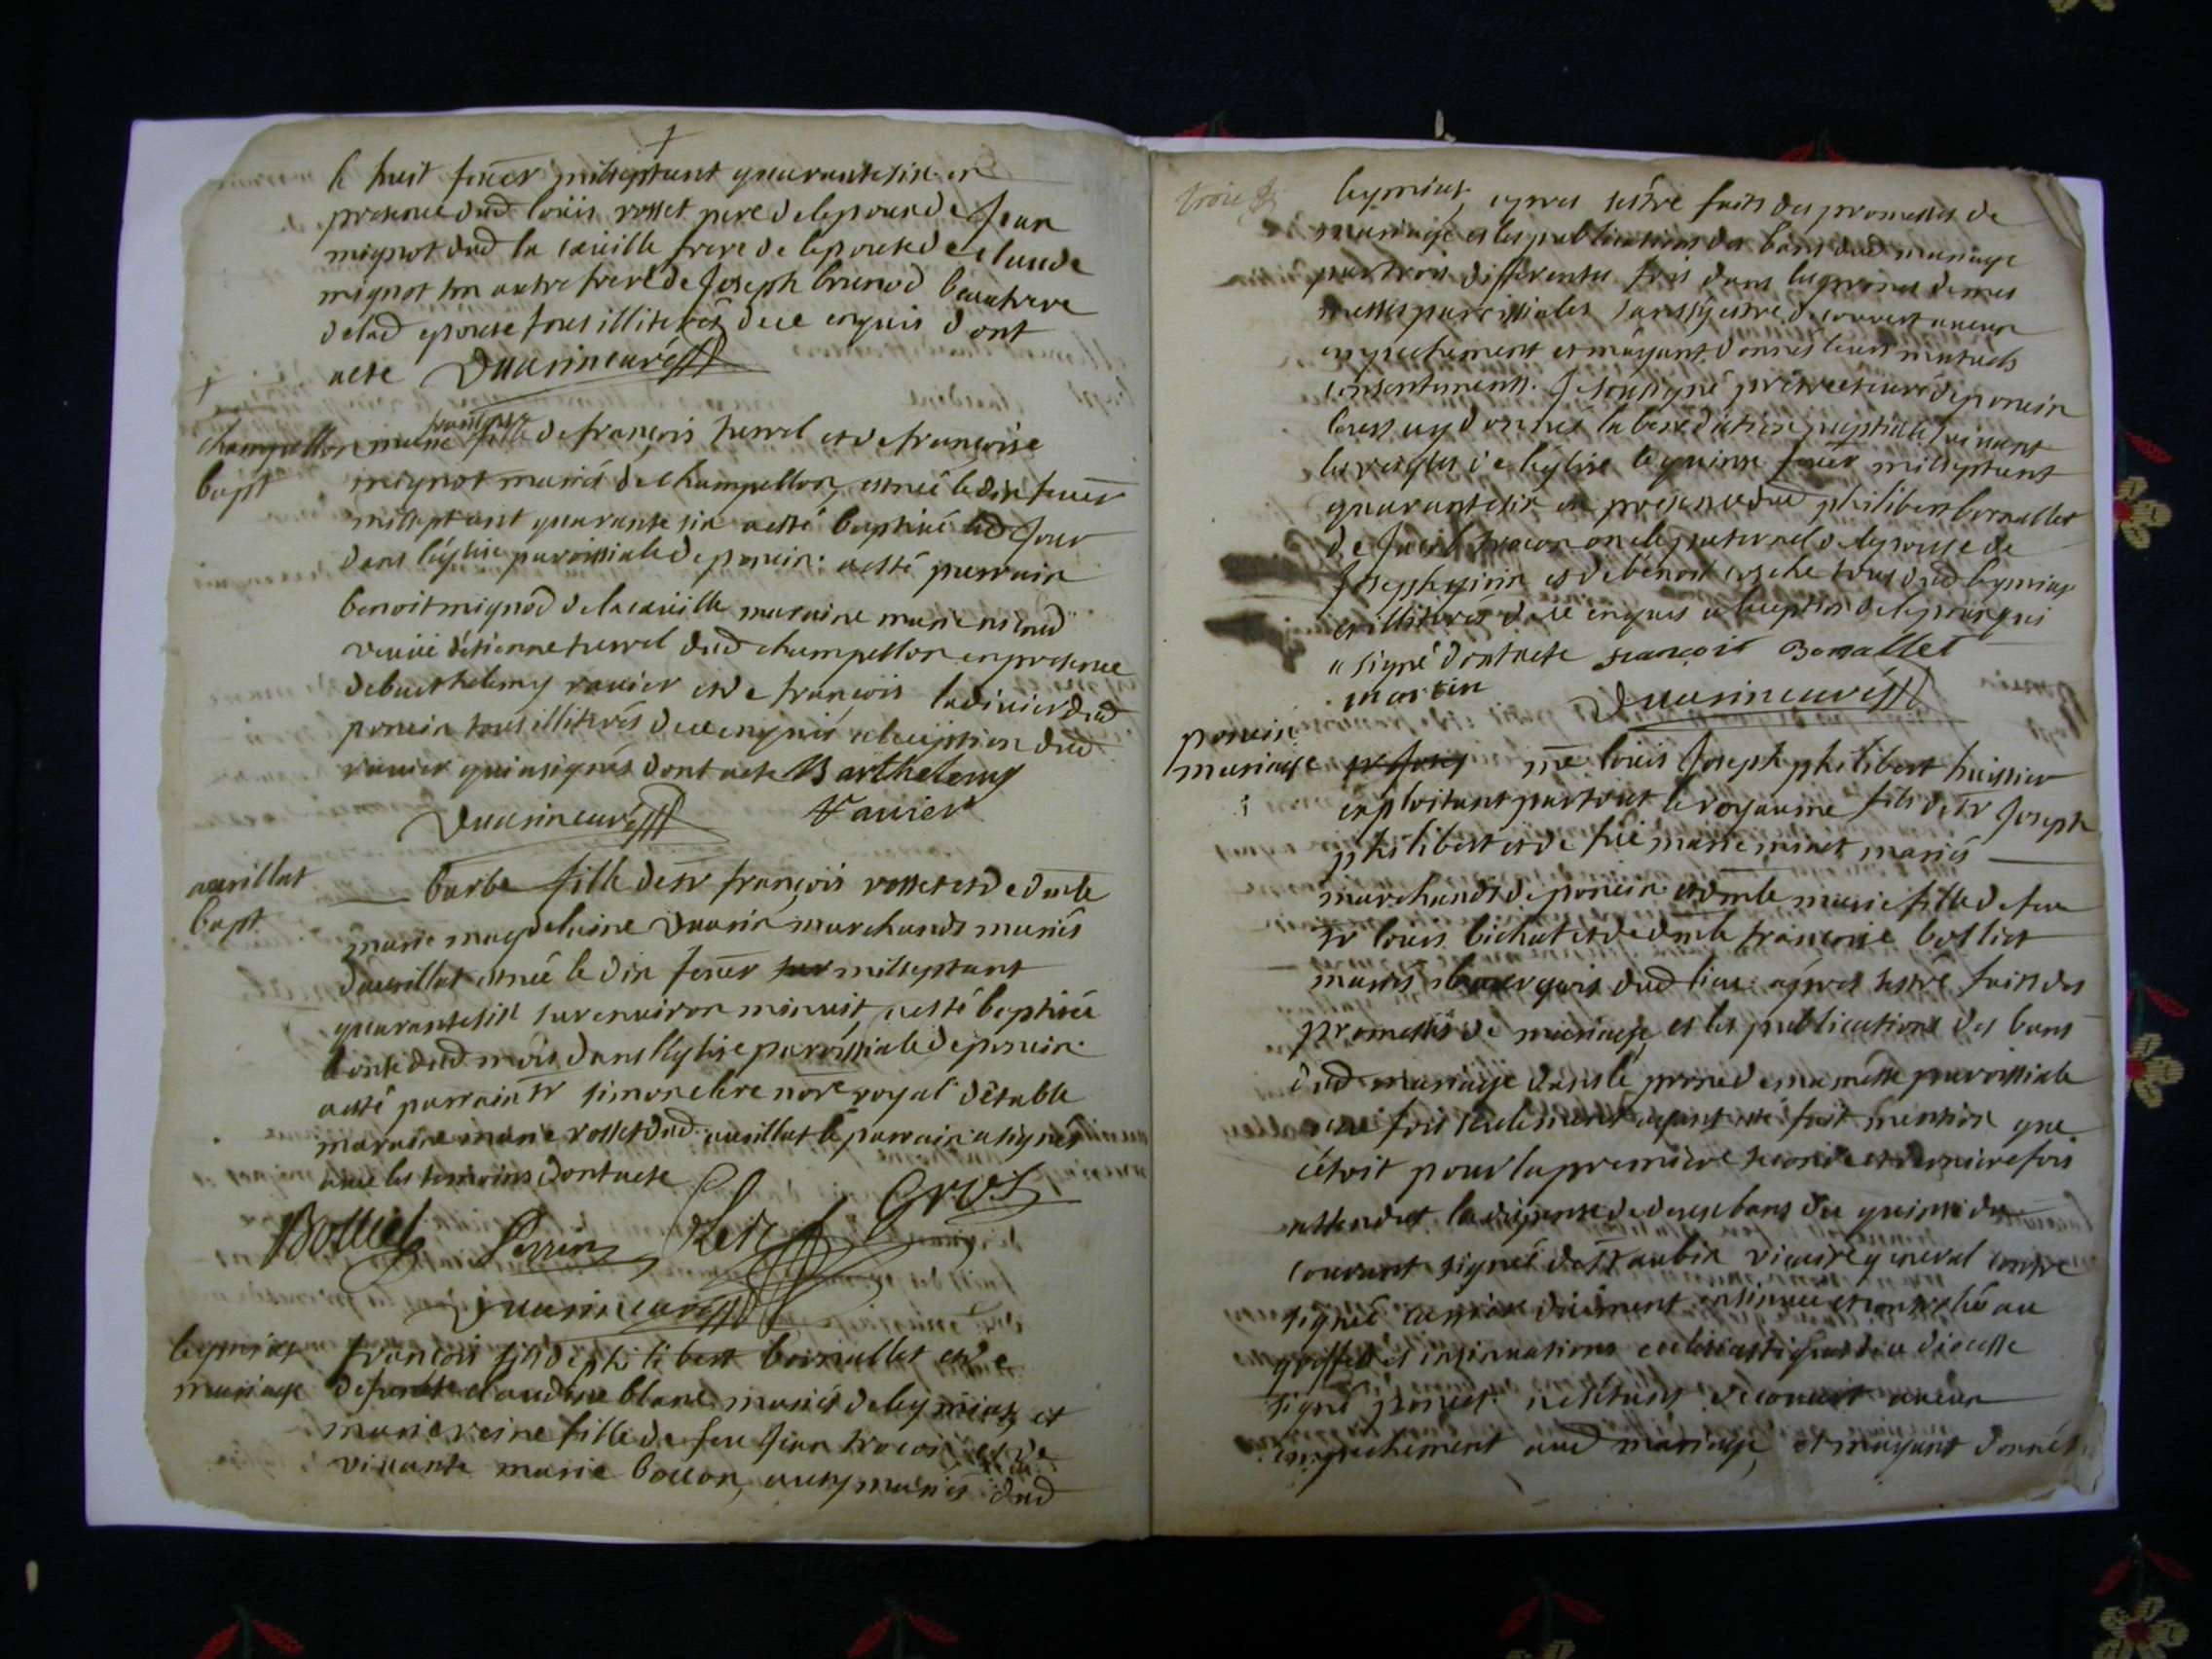 le huit fevër milseptcent quarantesix en
presence dud louis rosset pere de lepoux de Jean
mignot dud la cueille frere de lepouse de claude
mignot son autre frere de Joseph brunod beaufrere
de lad epouse tous illiterés de ce enquis dont
acte Duuarin curé
champellon
bapt
marie françoise fille de françois terrel et de françoise
mignot mariés de champellon, est née le dix fevër
milseptcent quarante six a esté baptisée led Jour
dans l'église paroissiale de poncin: a esté parrain
benoit mignod de la cueille maraine marie
veuve d'étienne terrel dud champellon en presence
de barthelemy vauier et de françois ladivier dud
poncin tous illiterés de ce enquis a l'exception dud
vauier qui a signés dont acte Barthelemy
Vauier
Duuarin curé
aurillat
bapt
barbe fille de sr françois rosset et de dmlle
marie magdelaine Duuarin marchands mariés
d'auerillat est née le dix fevër sur milseptcent
quarantesix sur enuiron minuit, a esté baptisée
l'onze dud mois dans l'église paroissiale de poncin
a esté parrain sr simon clere nore royal d'étable
maraine marie rosset dud auerillat le parrain a signés
auec les temoins dont acte
Bolliet Perrin Clere Gros
Duuarin curé
leymiat
mariage
françois fils de philibert bornallet et de
defunte claudine blanc mariés de leymiat, et
marie reine fille de feu Jean trocon et de
viuante marie bollon, aussy mariés dud
leymiat, apres s'estre faits des promesses de
mariage et les publications des bans dud mariage
par trois differentes fois dans les prones de mes
messes paroissiales sans s'y estre decouvert aucun
empechement et m'ayant donnés leurs mutuels
consentements. Je soussigné prêtre et curé de poncin
leurs ay donnés la benediction nuptiale suiuant
les regles de l'église le quinze fevër milseptcent
quarantesix en presence dud philibert bornallet
de trocon oncle paternel de lepouse de
Joseph et de benoit tous dud leymiat
et illiterés de ce enquis a l'exception de lepoux qui
a signé dont acte françois Bornallet
martin
Duuarin curé
poncin
mariage
me louis Joseph philibert huissier
exploitant partout le royaume fils de sr Joseph
philibert et de feüe marie minet mariés
marchands de poncin et dmlle marie fille de feu
sr louis bichat et de dmlle françoise bolliet
mariés bourgeois dud lieu: apres s'estre faits des
promesses de mariage, et les publications des bans
dud mariage dans le prone de ma messe paroissiale
une fois seulement ayant esté fait mention que
c'étoit pour la premiere seconde et derniere fois
attendut la dispense de deux bans du quinze du
courant signée de st aubin vicaire general contre
signée duement insinuée et controlée au
greffe des insinuations ecclesiastiques du diocesse
signé ponet: ne s'étant decouvert aucun
empechement aud mariage, et m'ayant donnés